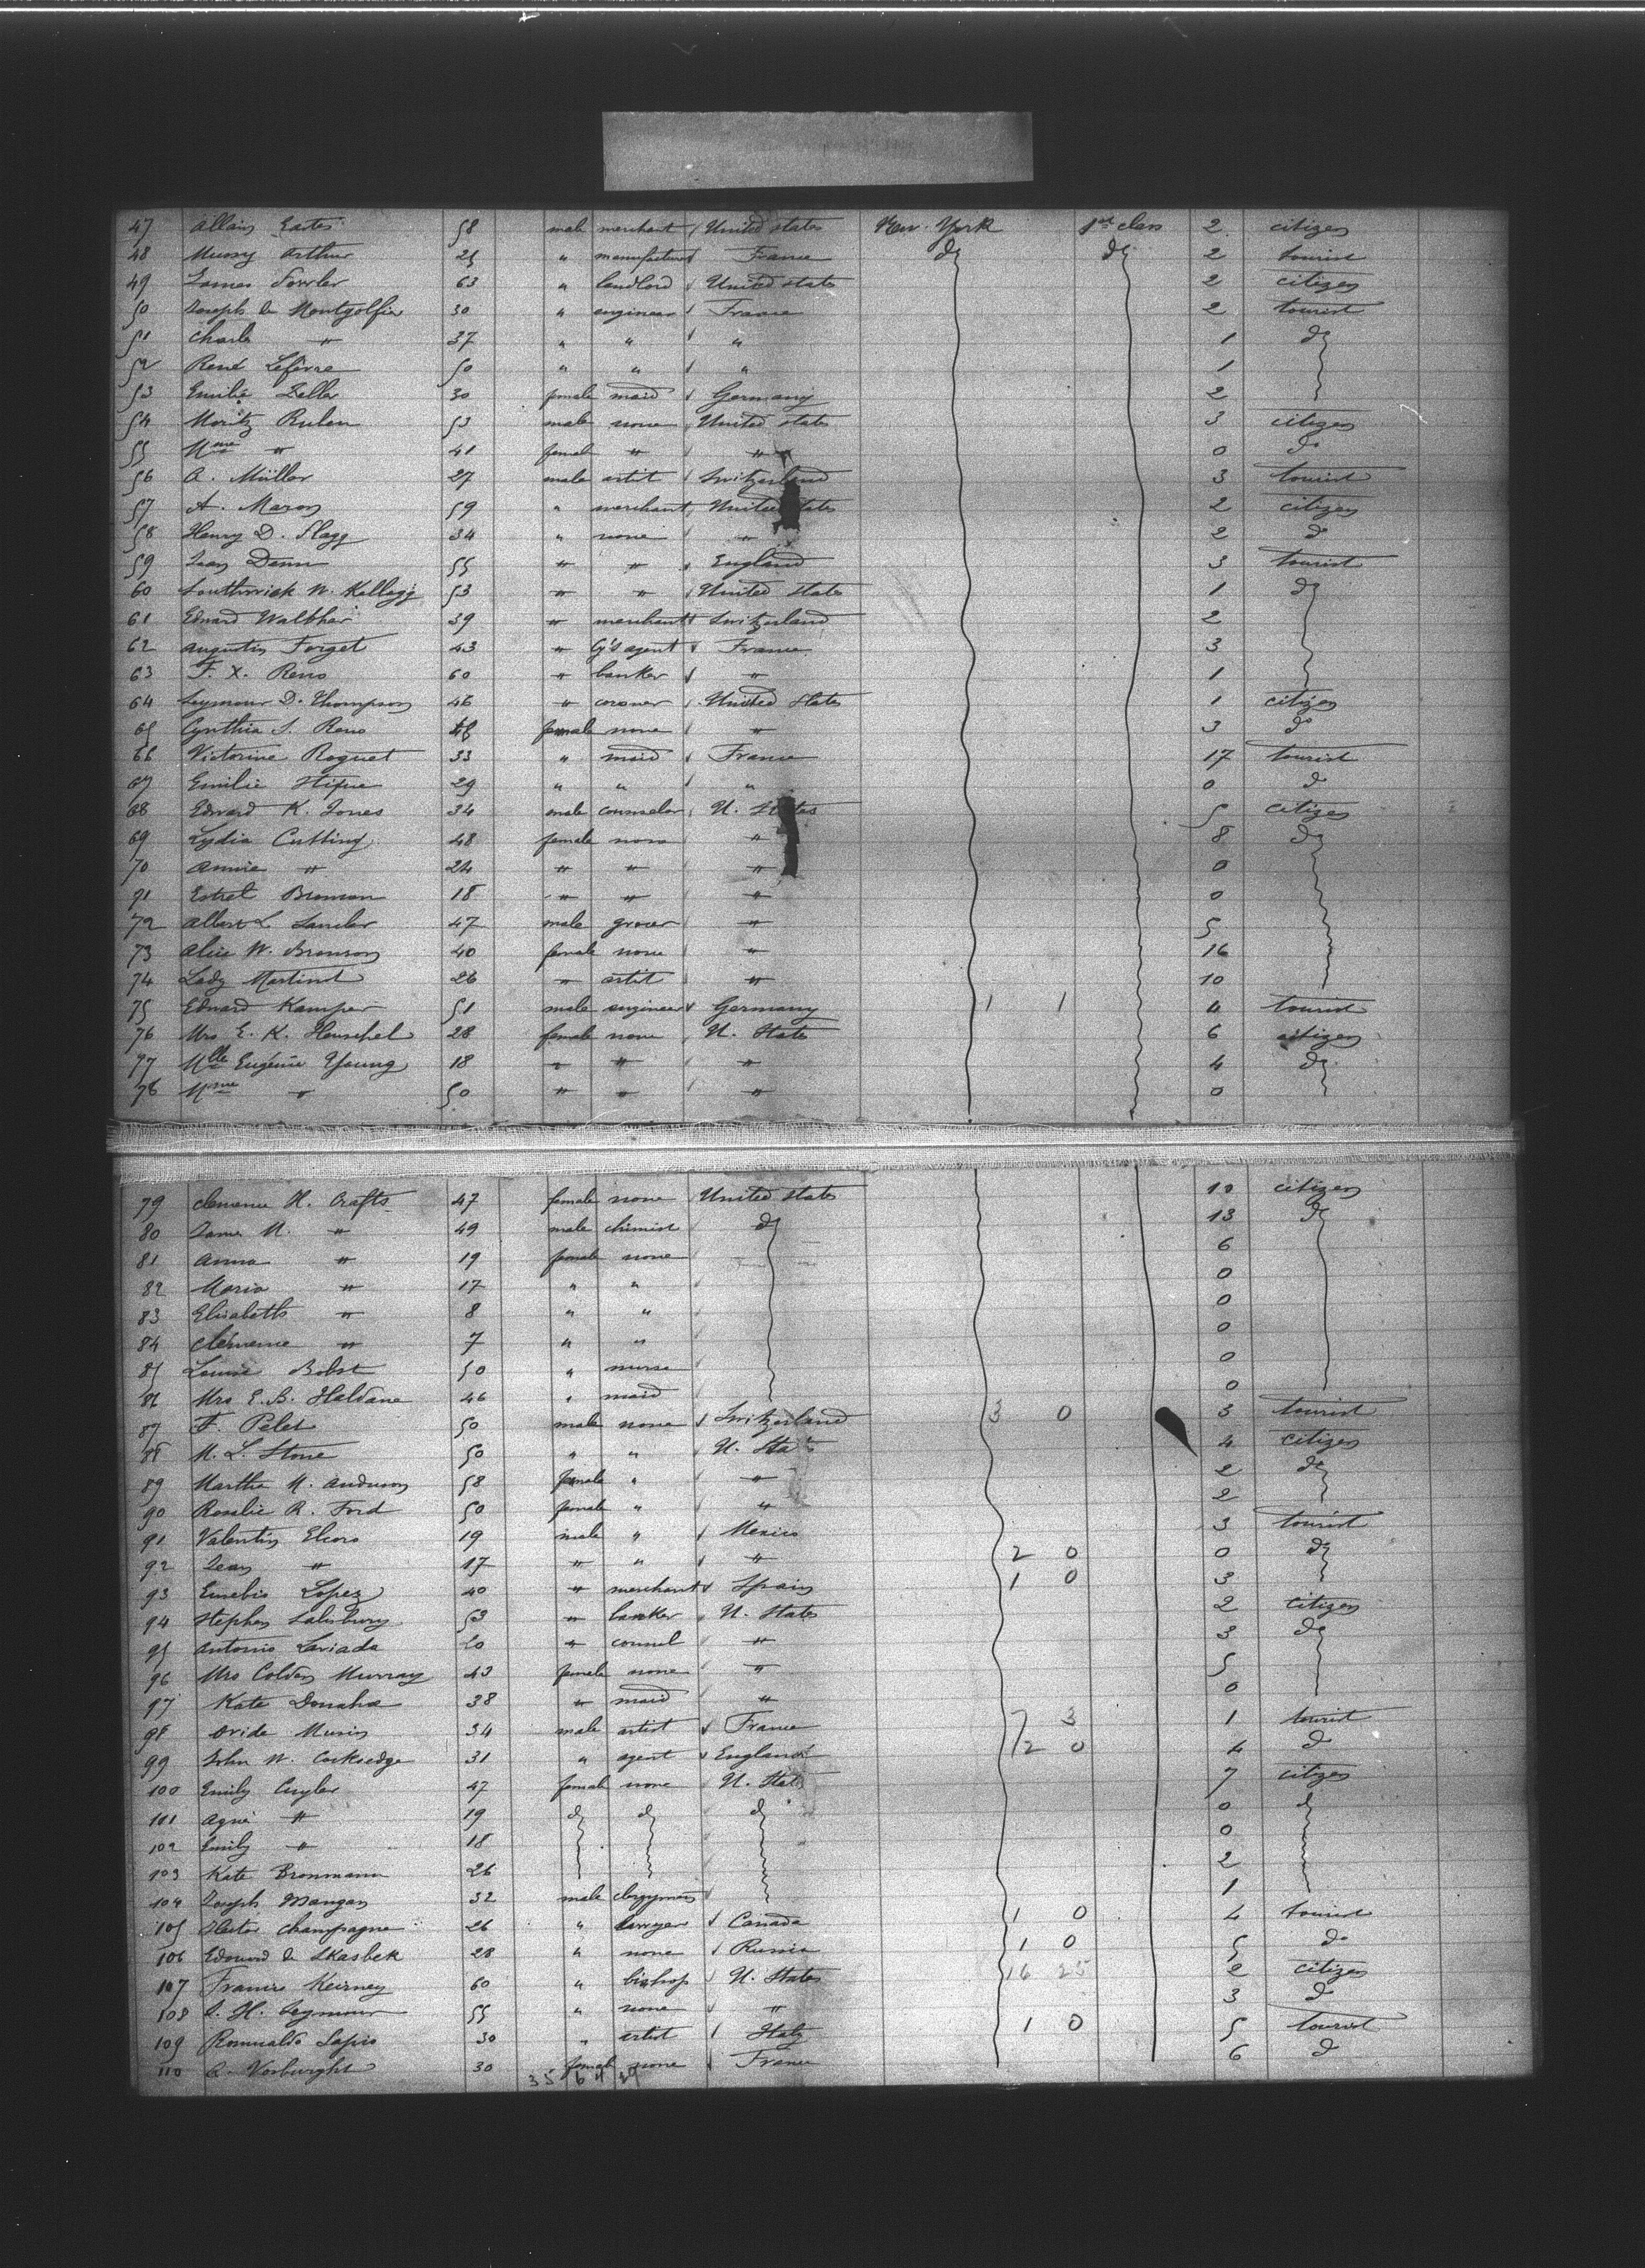 47 Allain Eates 58 male merchant United states New-York 1st class 2 citizen
48 Mussy Arthur 25 " manufacturer France do do 2 tourist
49 James Fowler 63 " landlord United states 2 citizen
50 Joseph de Montgolfier 30 " engineer France 2 tourist
51 Charles " 37 " " " 1 do
52 René Lefèvre 50 " " " 1
53 Emilie Zeller 30 female maid Germany 2
54 Moritz Ruben 53 male none United states 3 citizen
55 Mme " 41 female " " 0 do
56 A. Müller 27 male artist Switzerland 3 tourist
57 A. Mason 59 " merchant United states 2 citizen
58 Henry D. Slagg 34 " none " 2 do
59 Jean Dann 55 " " England 3 tourist
60 Southwick W. Kellogg 53 " " United States 1 do
61 Edward Walther 39 " merchant Switzerland 2
62 Augustin Forget 43 " Cy's agent France 3
63 F. X. Reno 60 " banker " 1
64 Seymour D. Thompson 46 " coroner United States 1 citizen
65 Cynthia S. Reno female none " 3 do
66 Victorine Roguet 33 " maid France 17 tourist
67 Emilie 29 " " " 0 do
68 Edward K. Jones 34 male counselor U. States 5 citizen
69 Lydia Cutting 48 female none " 8 do
70 Annie " 24 " " " 0
71 Bronson 18 " " " 0
72 Albert L 47 male grocer " 5
73 Alice W. Bronson 40 female none " 16
74 Lady Martinot 26 " artist " 10
75 Edward Kamper 51 male engineer Germany 1 1 4 tourist
76 Mrs E. K. Henschel 28 female none U. States 6 citizen
77 Mlle Eugénie Young 18 " " " 4 do
78 Mme " 50 " " " 0
79 Clemence H. Crafts 47 female none United states 10 citizen
80 James M. " 49 male chimist do 13 do
81 Anna " 19 female none 6
82 Maria " 17 " " 0
83 Elisabeth " 8 " " 0
84 Clémence " 7 " " 0
85 Louise Bobst 50 " nurse 0
86 Mrs E. B. Haldane 46 " maid 0
87 F. Pelet 50 male none Switzerland 3 0 3 tourist
88 M. L. Stone 50 " " U. States 4 citizen
89 Martha M. Anderson 58 female " " 2 do
90 Rosalie R. Ford 50 female " " 2
91 Valentin Elcoro 19 male " Mexico 3 tourist
92 Jean " 17 " " " 2 0 0 do
93 Eusebio Lopez 40 " merchant Spain 1 0 3
94 Stephen Salisbury 53 " banker U. States 2 citizen
95 Antonio Laviada 20 " counsel " 3 do
96 Mrs Colden Murray 43 female none " 5
97 Kate Donahoe 38 " maid " 0
98 Ovide Musin 34 male artist France 7 3 1 tourist
99 John W. Cocksedge 31 " agent England 2 0 4 do
100 Emily Cuyler 47 female none U. States 7 citizen
101 Agnè " 19 do do do 0 do
102 Emily " 18 0
103 Kate Bronmann 26 2
104 Joseph Mangan 32 male clergyman 1
105 Hector Champagne 26 " lawyer Canada 1 0 4 tourist
106 Edouard de Skasbek 28 " none Russia 1 0 5 do
107 Francis Keirney 60 " bishop U. States 16 25 2 citizen
108 S. H. Seymour 55 " none " 3 do
109 Romualdo Sapio 30 " artist Italy 1 0 5 tourist
110 A. Vosburght 30 female none France 6 do